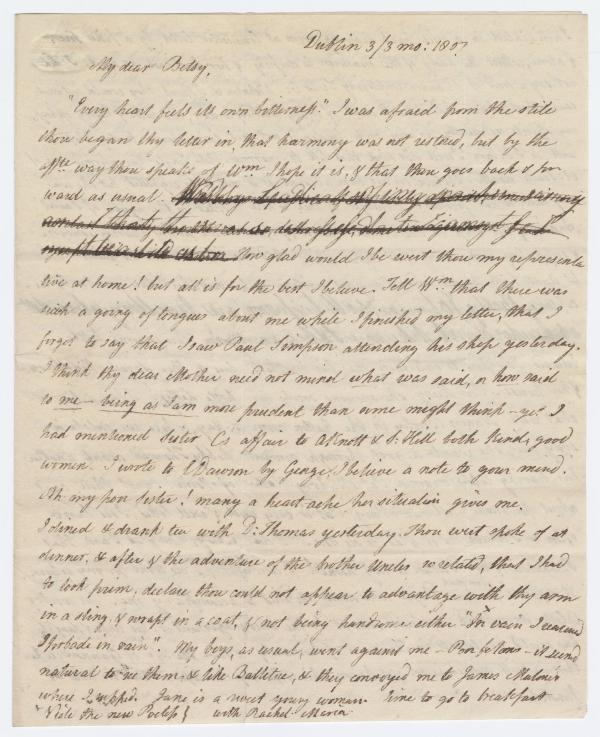 Dublin 3/3 mo: 180
My dear Betsy,
"Every heart feels its own bitterness." I was afraid from the stile
thou began thy letter in, that harmony was not restored, but by the
affte way thou speaks of Wm I hope it is, & that thou goes back & for
ward as usual.
How glad would I be wert thou my representa
tive at home! but all is for the best I believe. Tell Wm that there was
such a going of tongues about me while I finished my letter, that I
forgot to say that I saw Paul Simpson attending his shop yesterday.
I think thy dear Mother need not mind what was said, or how said
to me — being as I am more prudent than some might think — yet I
had mentioned Sister Cs affair to A Knott & S: Hill both kind, good
women. I wrote to E Dawson by George, I believe a note to your mind.
Ah my poor Sister! many a heart-ache her situation gives me.
I dined & drank tea with D: Thomas yesterday. Thou wert spoke of at
dinner, & after & the adventure of the brother Uncles related, that I had
to look prim, declare thou could not appear to advantage with thy arm
in a sling, & wrapt in a coat, & not being handsome either "In vain I
I forbade in vain". My boys, as usual, went against me — Poor fellows — it seemd
natural to see them & like Ballitore, & they conveyed me to James
where I supped. Jane is a sweet young woman. time to go to breakfast
Vide the new Poetess } with Rachel Maria